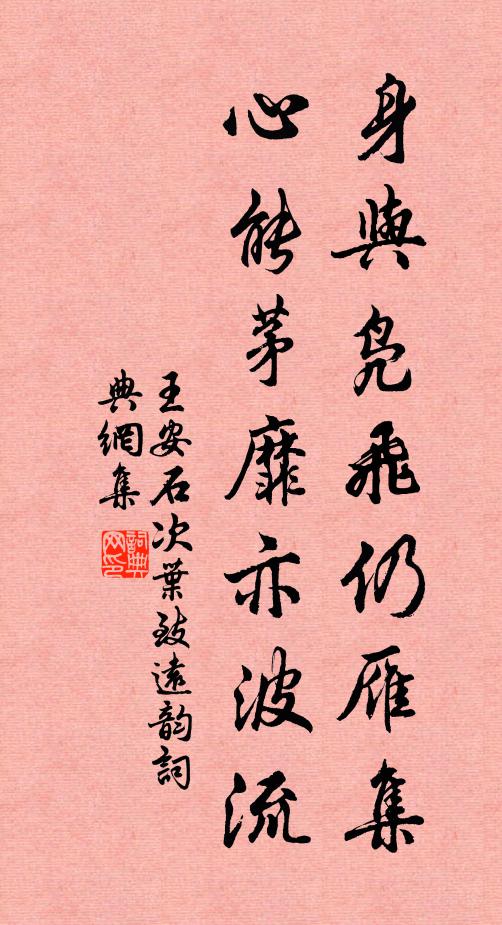 身與鳧飛仍雁集
心能茅靡亦波流
王安石次葉致遠韵詞
典網集
詞典网印